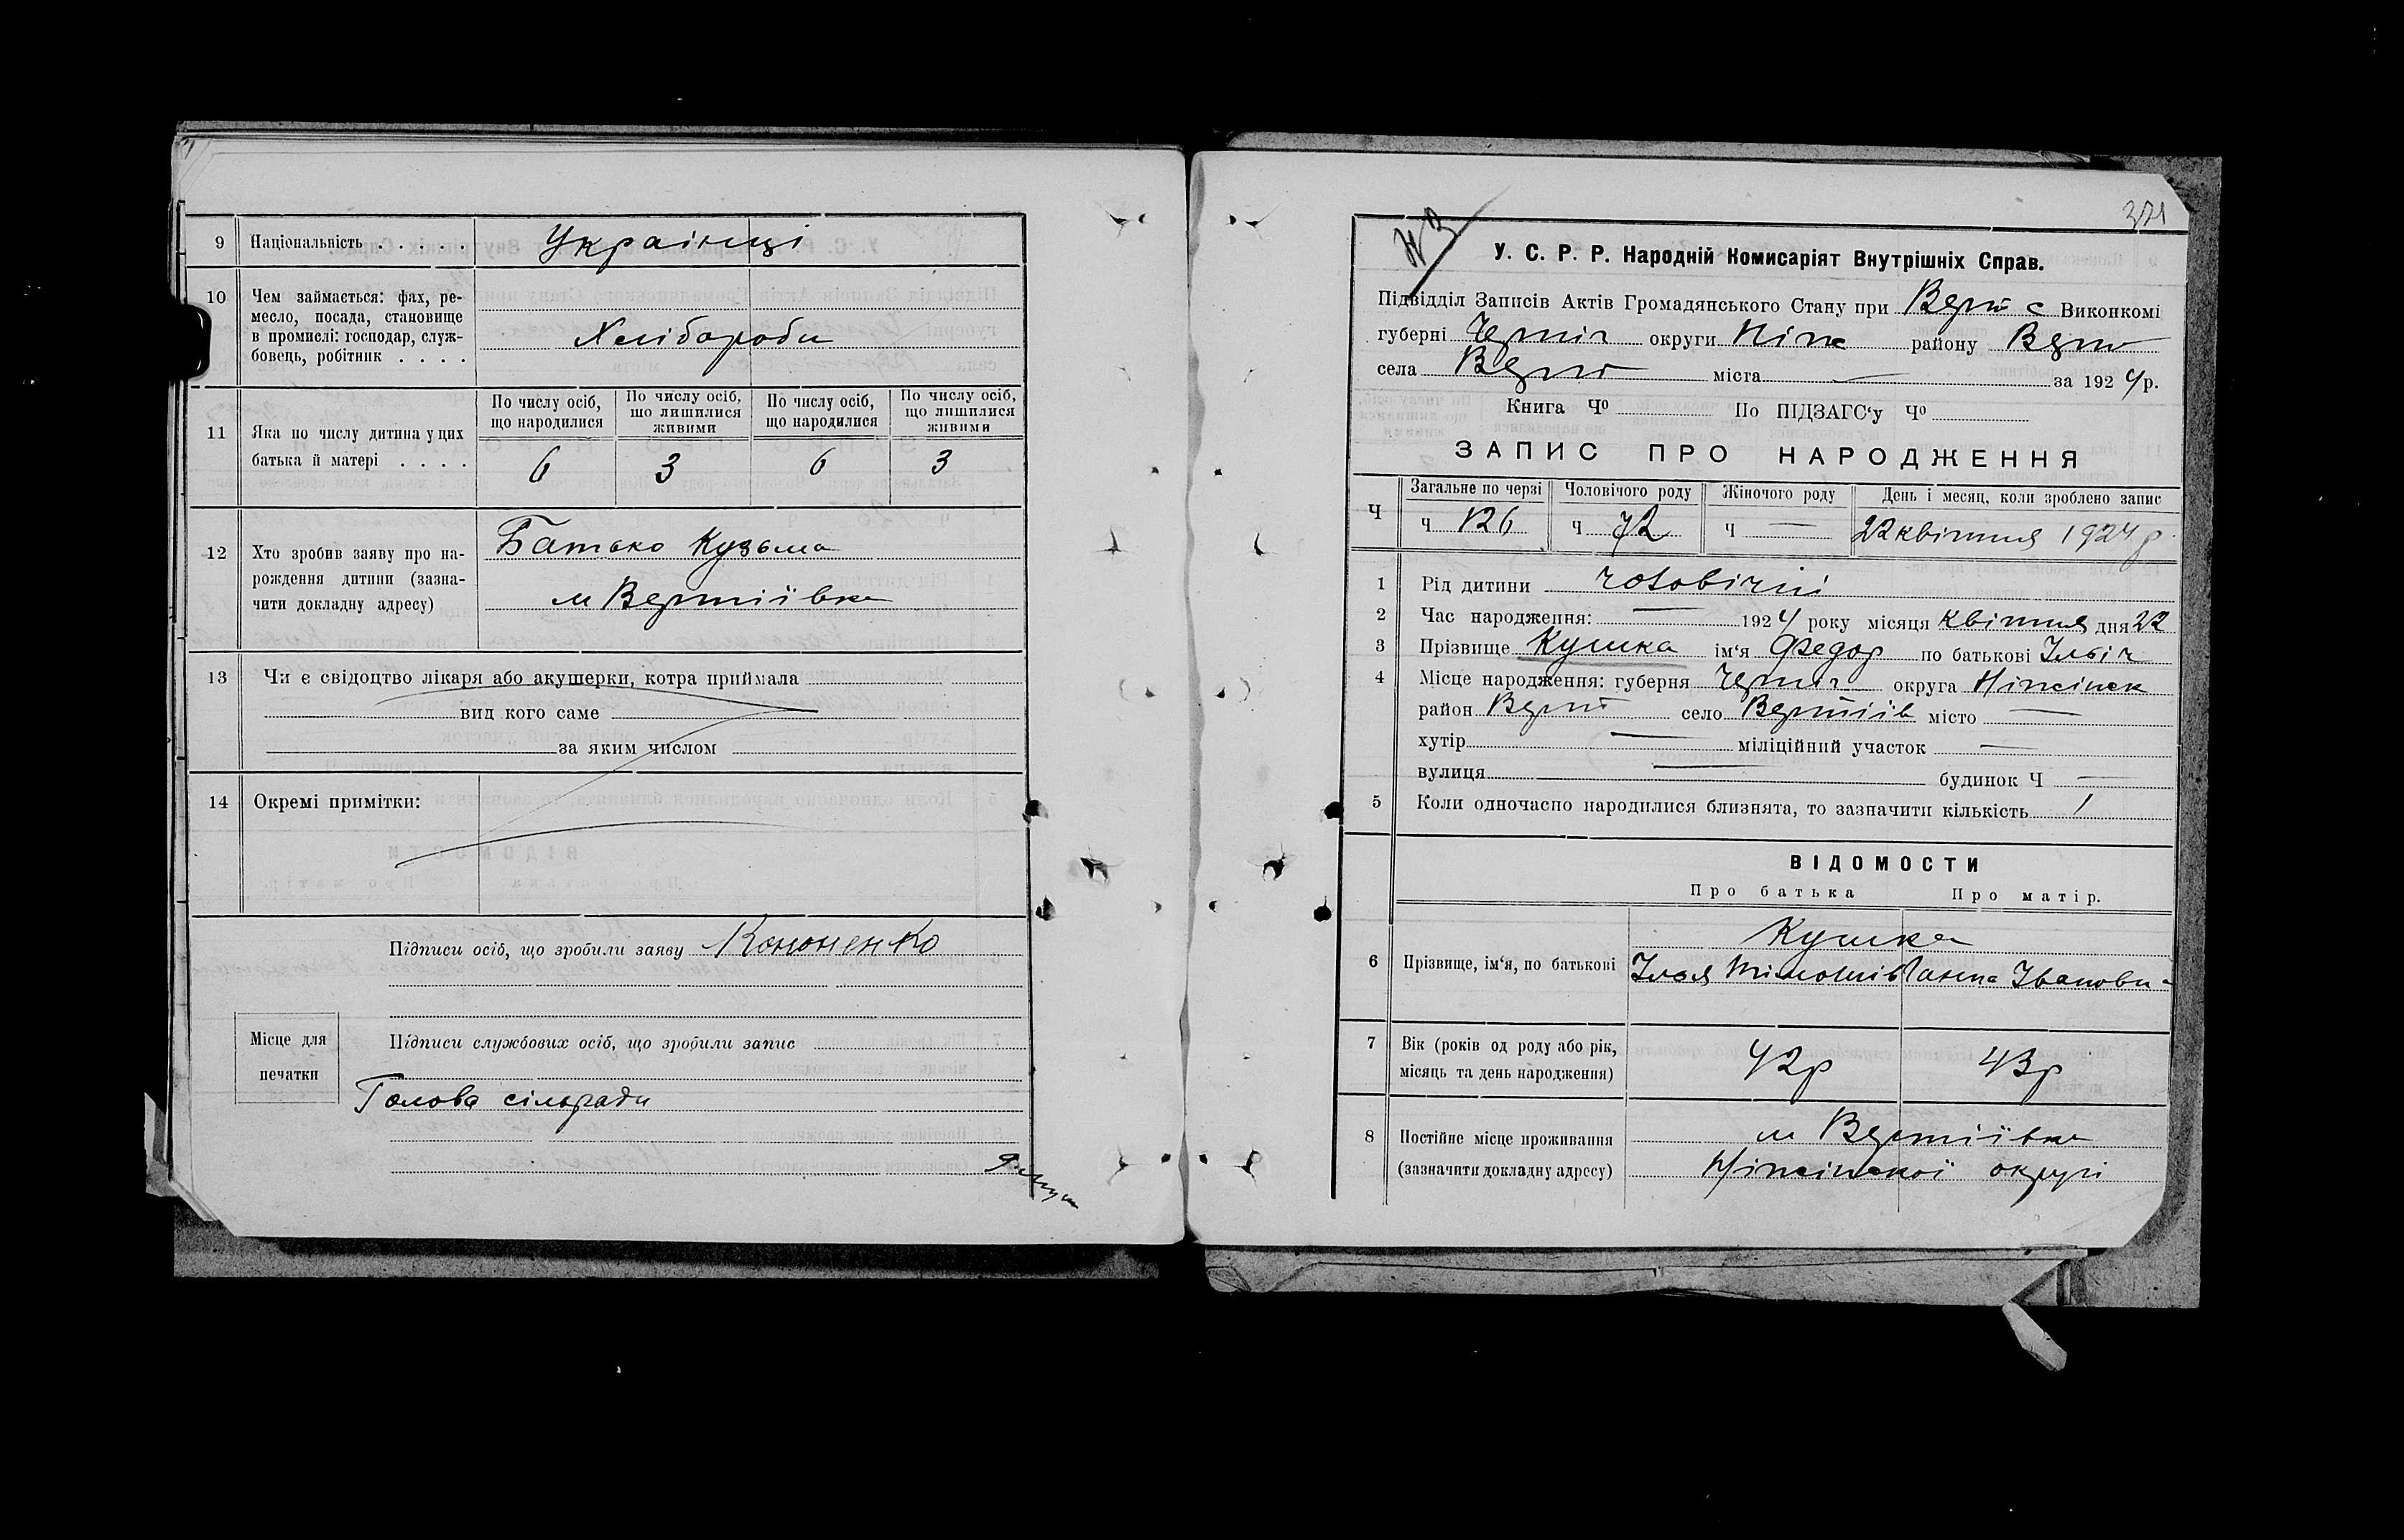 9 Національність . . . . . Українці
10 Чем займається: фах, ре-
месло, посада, становище
в промислі: господар, служ-
бовець, робітник . . . .
Хлібороби
11 Яка по числу дитина у цих
батька й матері . . . .
По числу осіб, що народилися
По числу осіб, що лишилися живими
По числу осіб, що народилися
По числу осіб, що лишилися живими
6 3 6 3
12 Хто зробив заяву про на-
рождення дитини (зазна-
чити докладну адресу)
Батько Кузьма
м Вертіївка
13 Чи є свідоцтво лікаря або акушерки, котра приймала
вид кого саме
за яким числом
14 Окремі примітки:
Підписи осіб, що зробили заяву Кононенко
Місце для
печатки
Підписи службових осіб, що зробили запис
Голова сільради
371
У. С. Р. Р. Народній Комисаріят Внутрішніх Справ.
Підвідділ Записів Актів Громадянського Стану при Верт с Виконкомі
губерні Черніг округи Ніж району Верт
села Верт міста — за 1924 р.
Книга Ч⁰ По ПІДЗАГС‘у Ч⁰
ЗАПИС ПРО НАРОДЖЕННЯ
Ч Загальне по черзі Чоловічого роду Жіночого роду День і месяц, коли зроблено запис
ч 126 ч 72 ч — 22 квітня 1924 р.
1 Рід дитини чоловічий
2 Час народження: — 1924 року місяця квітня дня 22
3 Прізвище Кушка ім‘я Федор по батькові Ільіч
4 Місце народження: губерня Черніг округа Ніжінск
район Верт село Вертіїв місто —
хутір — міліційний участок —
вулиця — будинок Ч —
5 Коли одночасно народилися близнята, то зазначити кількість 1
ВІДОМОСТИ
Про батька Про матір.
6 Прізвище, ім‘я, по батькові
Кушка
Ілья Тімошів Ганна Іванови
7 Вік (років од роду або рік,
місяць та день народження)
42р 43р
8 Постійне місце проживання
(зазначити докладну адресу)
м Вертіївка
Ніжінскої округі